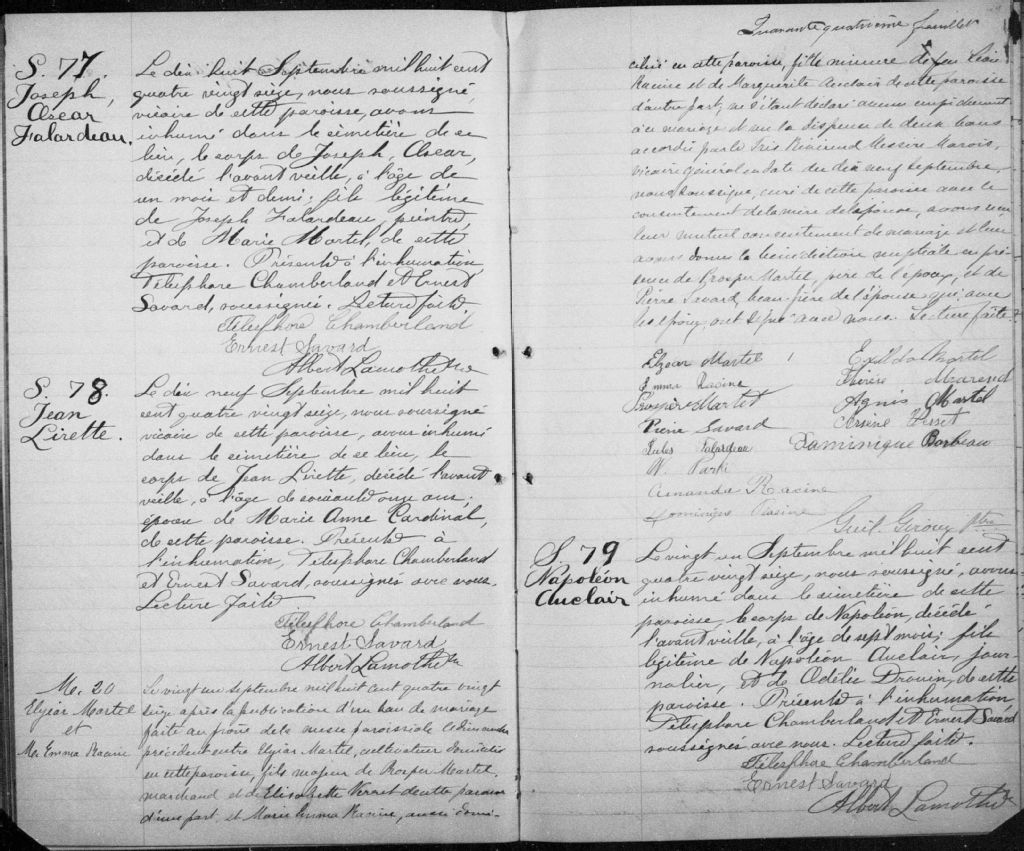 S. 77,
Joseph,
Oscar
Falardeau.
Le dix huit Septembre mil huit cent
quatre vingt seize, nous soussigné
vicaire de cette paroisse, avons
inhumé dans le cimetière de ce
lieu, le corps de Joseph, Oscar,
décédé l'avant veille, à l'âge de
un mois et demi; fils légitime
de Joseph Falardeau, peintre,
et de Marie Martel, de cette
paroisse. Présents à l'inhumation
Télesphore Chamberland et Ernest
Savard, soussignés. Lecture faite.
Télesphore Chamberland
Ernest Savard
Albert Lamothe
S. 78.
Jean
Lirette.
Le dix neuf Septembre mil huit
cent quatre vingt seize, nous soussigné
vicaire de cette paroisse, avons inhumé
dans le cimetière de ce lieu, le
corps de Jean Lirette, décédé l'avant
veille, à l'âge de soixante onze ans,
époux de Marie Anne Cardinal,
de cette paroisse. Présents à
l'inhumation, Télesphore Chamberland
et Ernest Savard, soussignés avec nous.
Lecture faite
Télesphore Chamberland
Ernest Savard
Albert Lamothe
M. 20
Elzéar Martel
et
M. Emma Racine
Le vingt un septembre mil huit cent quatre vingt
seize après la publication d'un ban de mariage
faite au prône de la messe paroissiale le dimanche
précédent entre Elzéar Martel, cultivateur domicilié
en cette paroisse, fils majeur de Prosper Martel,
marchand et de Elisabette Verret de cette paroisse
d'une part, et Marie Emma Racine, aussi domi-
Quarante quatrième feuillet
ciliée en cette paroisse, fille mineure de feu
Racine et de Marguerite Auclair de cette paroisse
d'autre part, ne s'étant déclaré aucun empêchement
à ce mariage et vu la dispense de deux bans
accordée par le Très Révérend Messire Marois,
vicaire général en date du dix neuf septembre,
nous soussigné, curé de cette paroisse avec le
consentement de la mère de l'épouse, avons reçu
leur mutuel consentement de mariage et leur
avons donné la bénédiction nuptiale en pré-
sence de Prosper Martel, père de l'époux, et de
Pierre Savard, beau-frère de l'épouse qui, avec
les époux ont signé avec nous. Lecture faite.
Elzear Martel
Emma Racine
Prosper Martel
Pierre Savard
Jules Falardeau
Amanda Racine
Racine
Martel
Agnis Martel
Arsène
Daminique Barbeau
Guil. Giroux ptre
S 79
Napoléon
Auclair
Le vingt un Septembre mil huit cent
quatre vingt seize, nous soussigné, avons
inhumé dans le cimetière de cette
paroisse, le corps de Napoléon, décédé
l'avant veille, à l'âge de sept mois; fils
légitime de Napoléon Auclair, jour-
nalier, et de Odélie Drouin, de cette
paroisse. Présents à l'inhumation
Télesphore Chamberland et Ernest Savard
soussignés avec nous. Lecture faite.
Télesphore Chamberland
Ernest Savard
Albert Lamothe